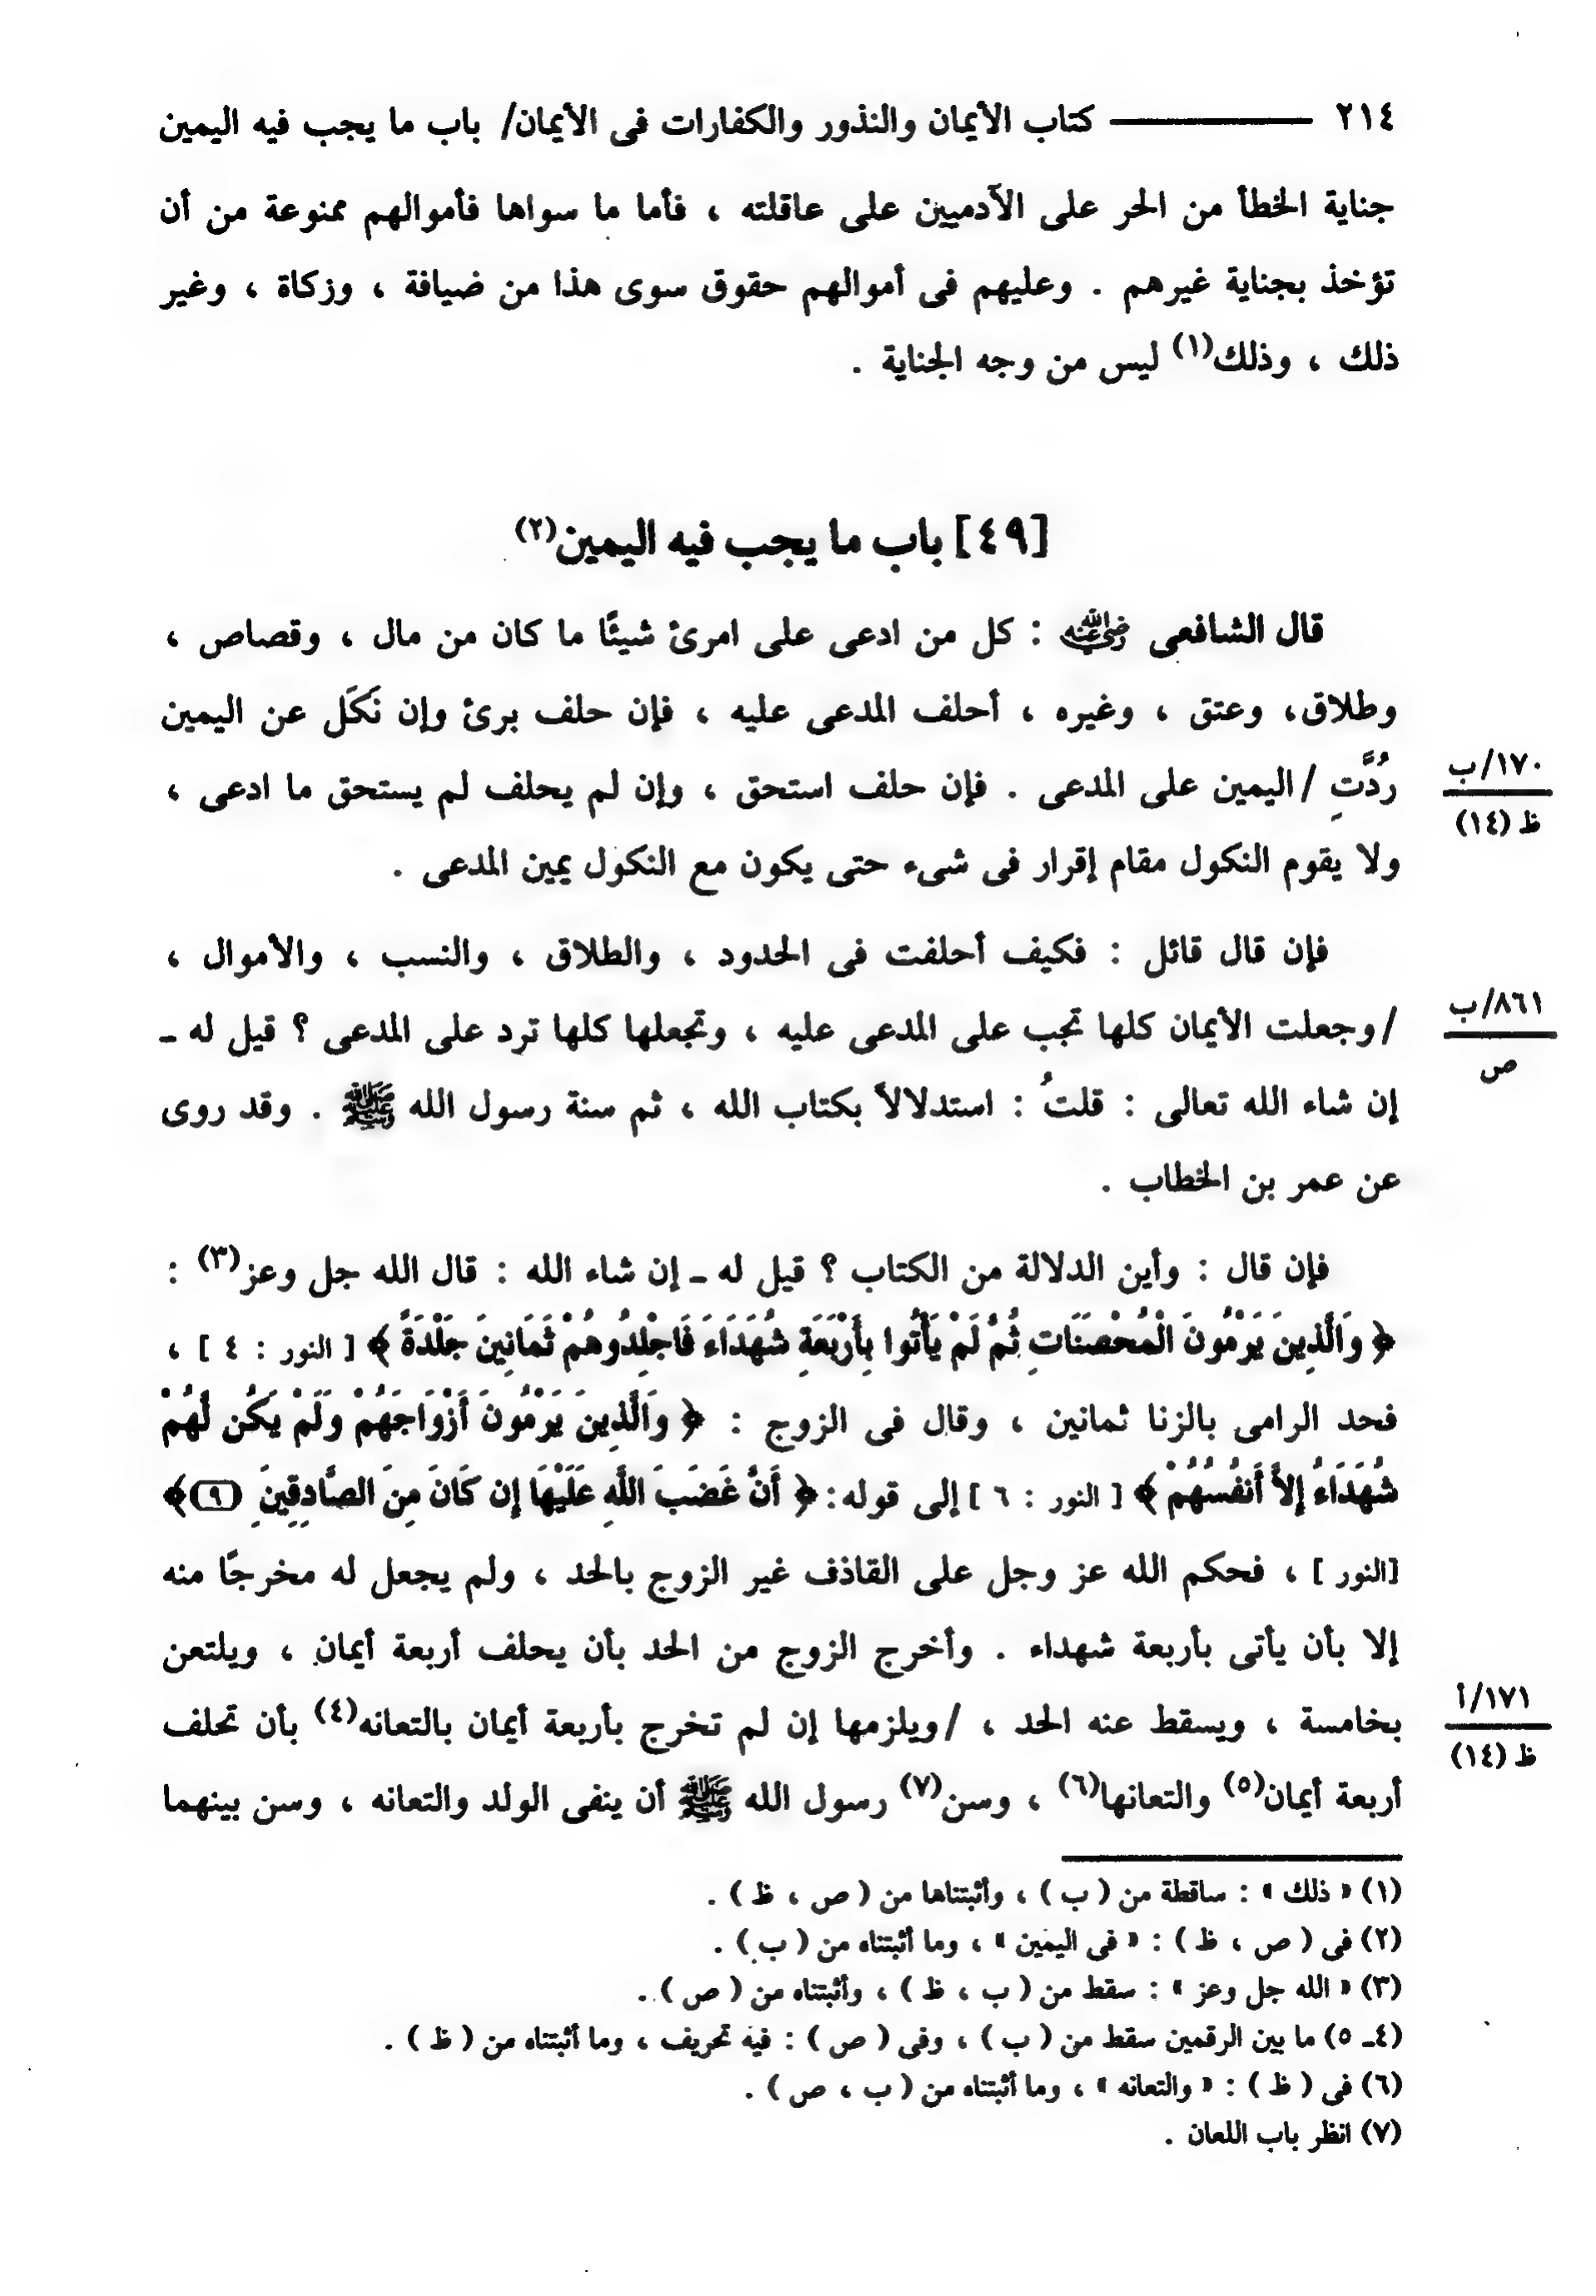 ٢١٤ ـــــــــــ كتاب الأيمان والنذور والكفارات فى الأيمان/ باب ما يجب فيه اليمين
جناية الخطأ من الحر على الآدميين على عاقلته ، فأما ما سواها فأموالهم ممنوعة من أن
تؤخذ بجناية غيرهم . وعليهم فى أموالهم حقوق سوى هذا من ضيافة ، وزكاة ، وغير
ذلك ، وذلك(١) ليس من وجه الجناية .
[٤٩] باب ما يجب فيه اليمين(٢)
قال الشافعى رضي الله عنه : كل من ادعى على امرئ شيئًا ما كان من مال ، وقصاص ،
وطلاق، وعتق ، وغيره ، أحلف المدعى عليه ، فإن حلف برئ وإن نَكَل عن اليمين
رُدَّتِ / اليمين على المدعى . فإن حلف استحق ، وإن لم يحلف لم يستحق ما ادعى ،
١٧٠/ب
ظ (١٤)
ولا يقوم النكول مقام إقرار فى شىء حتى يكون مع النكول يمين المدعى .
فإن قال قائل : فكيف أحلفت فى الحدود ، والطلاق ، والنسب ، والأموال ،
/ وجعلت الأيمان كلها تجب على المدعى عليه ، وتجعلها كلها ترد على المدعى ؟ قيل له ـ
٨٦١/ب
ص
إن شاء الله تعالى : قلتُ : استدلالاً بكتاب الله ، ثم سنة رسول الله ﷺ . وقد روى
عن عمر بن الخطاب .
فإن قال : وأين الدلالة من الكتاب ؟ قيل له ـ إن شاء الله : قال الله جل وعز(٣) :
﴿ وَالَّذِينَ يَرْمُونَ الْمُحْصَنَاتِ ثُمَّ لَمْ يَأْتُوا بِأَرْبَعَةِ شُهَدَاءَ فَاجْلِدُوهُمْ ثَمَانِينَ جَلْدَةً ﴾ [ النور : ٤ ] ،
فحد الرامى بالزنا ثمانين ، وقال فى الزوج : ﴿ وَالَّذِينَ يَرْمُونَ أَزْوَاجَهُمْ وَلَمْ يَكُن لَّهُمْ
شُهَدَاءُ إِلاَّ أَنفُسُهُمْ ﴾ [ النور : ٦ ] إلى قوله: ﴿ أَنَّ غَضَبَ اللَّهِ عَلَيْهَا إِن كَانَ مِنَ الصَّادِقِينَ (٩)﴾
[النور ] ، فحكم الله عز وجل على القاذف غير الزوج بالحد ، ولم يجعل له مخرجًا منه
إلا بأن يأتى بأربعة شهداء . وأخرج الزوج من الحد بأن يحلف أربعة أيمان ، ويلتعن
بخامسة ، ويسقط عنه الحد ، / ويلزمها إن لم تخرج بأربعة أيمان بالتعانه(٤) بأن تحلف
١٧١/أ
ظ (١٤)
أربعة أيمان(٥) والتعانها(٦) ، وسن(٧) رسول الله ﷺ أن ينفى الولد والتعانه ، وسن بينهما
(١) « ذلك » : ساقطة من ( ب ) ، وأثبتناها من ( ص ، ظ ) .
(٢) فى ( ص ، ظ ) : « فى اليمين » ، وما أثبتناه من ( ب ) .
(٣) « الله جل وعز » : سقط من ( ب ، ظ ) ، وأثبتناه من ( ص ) .
(٤ـ ٥) ما بين الرقمين سقط من ( ب ) ، وفى ( ص ) : فيه تحريف ، وما أثبتناه من ( ظ ) .
(٦) فى ( ظ ) : « والتعانه » ، وما أثبتناه من ( ب ، ص ) .
(٧) انظر باب اللعان .